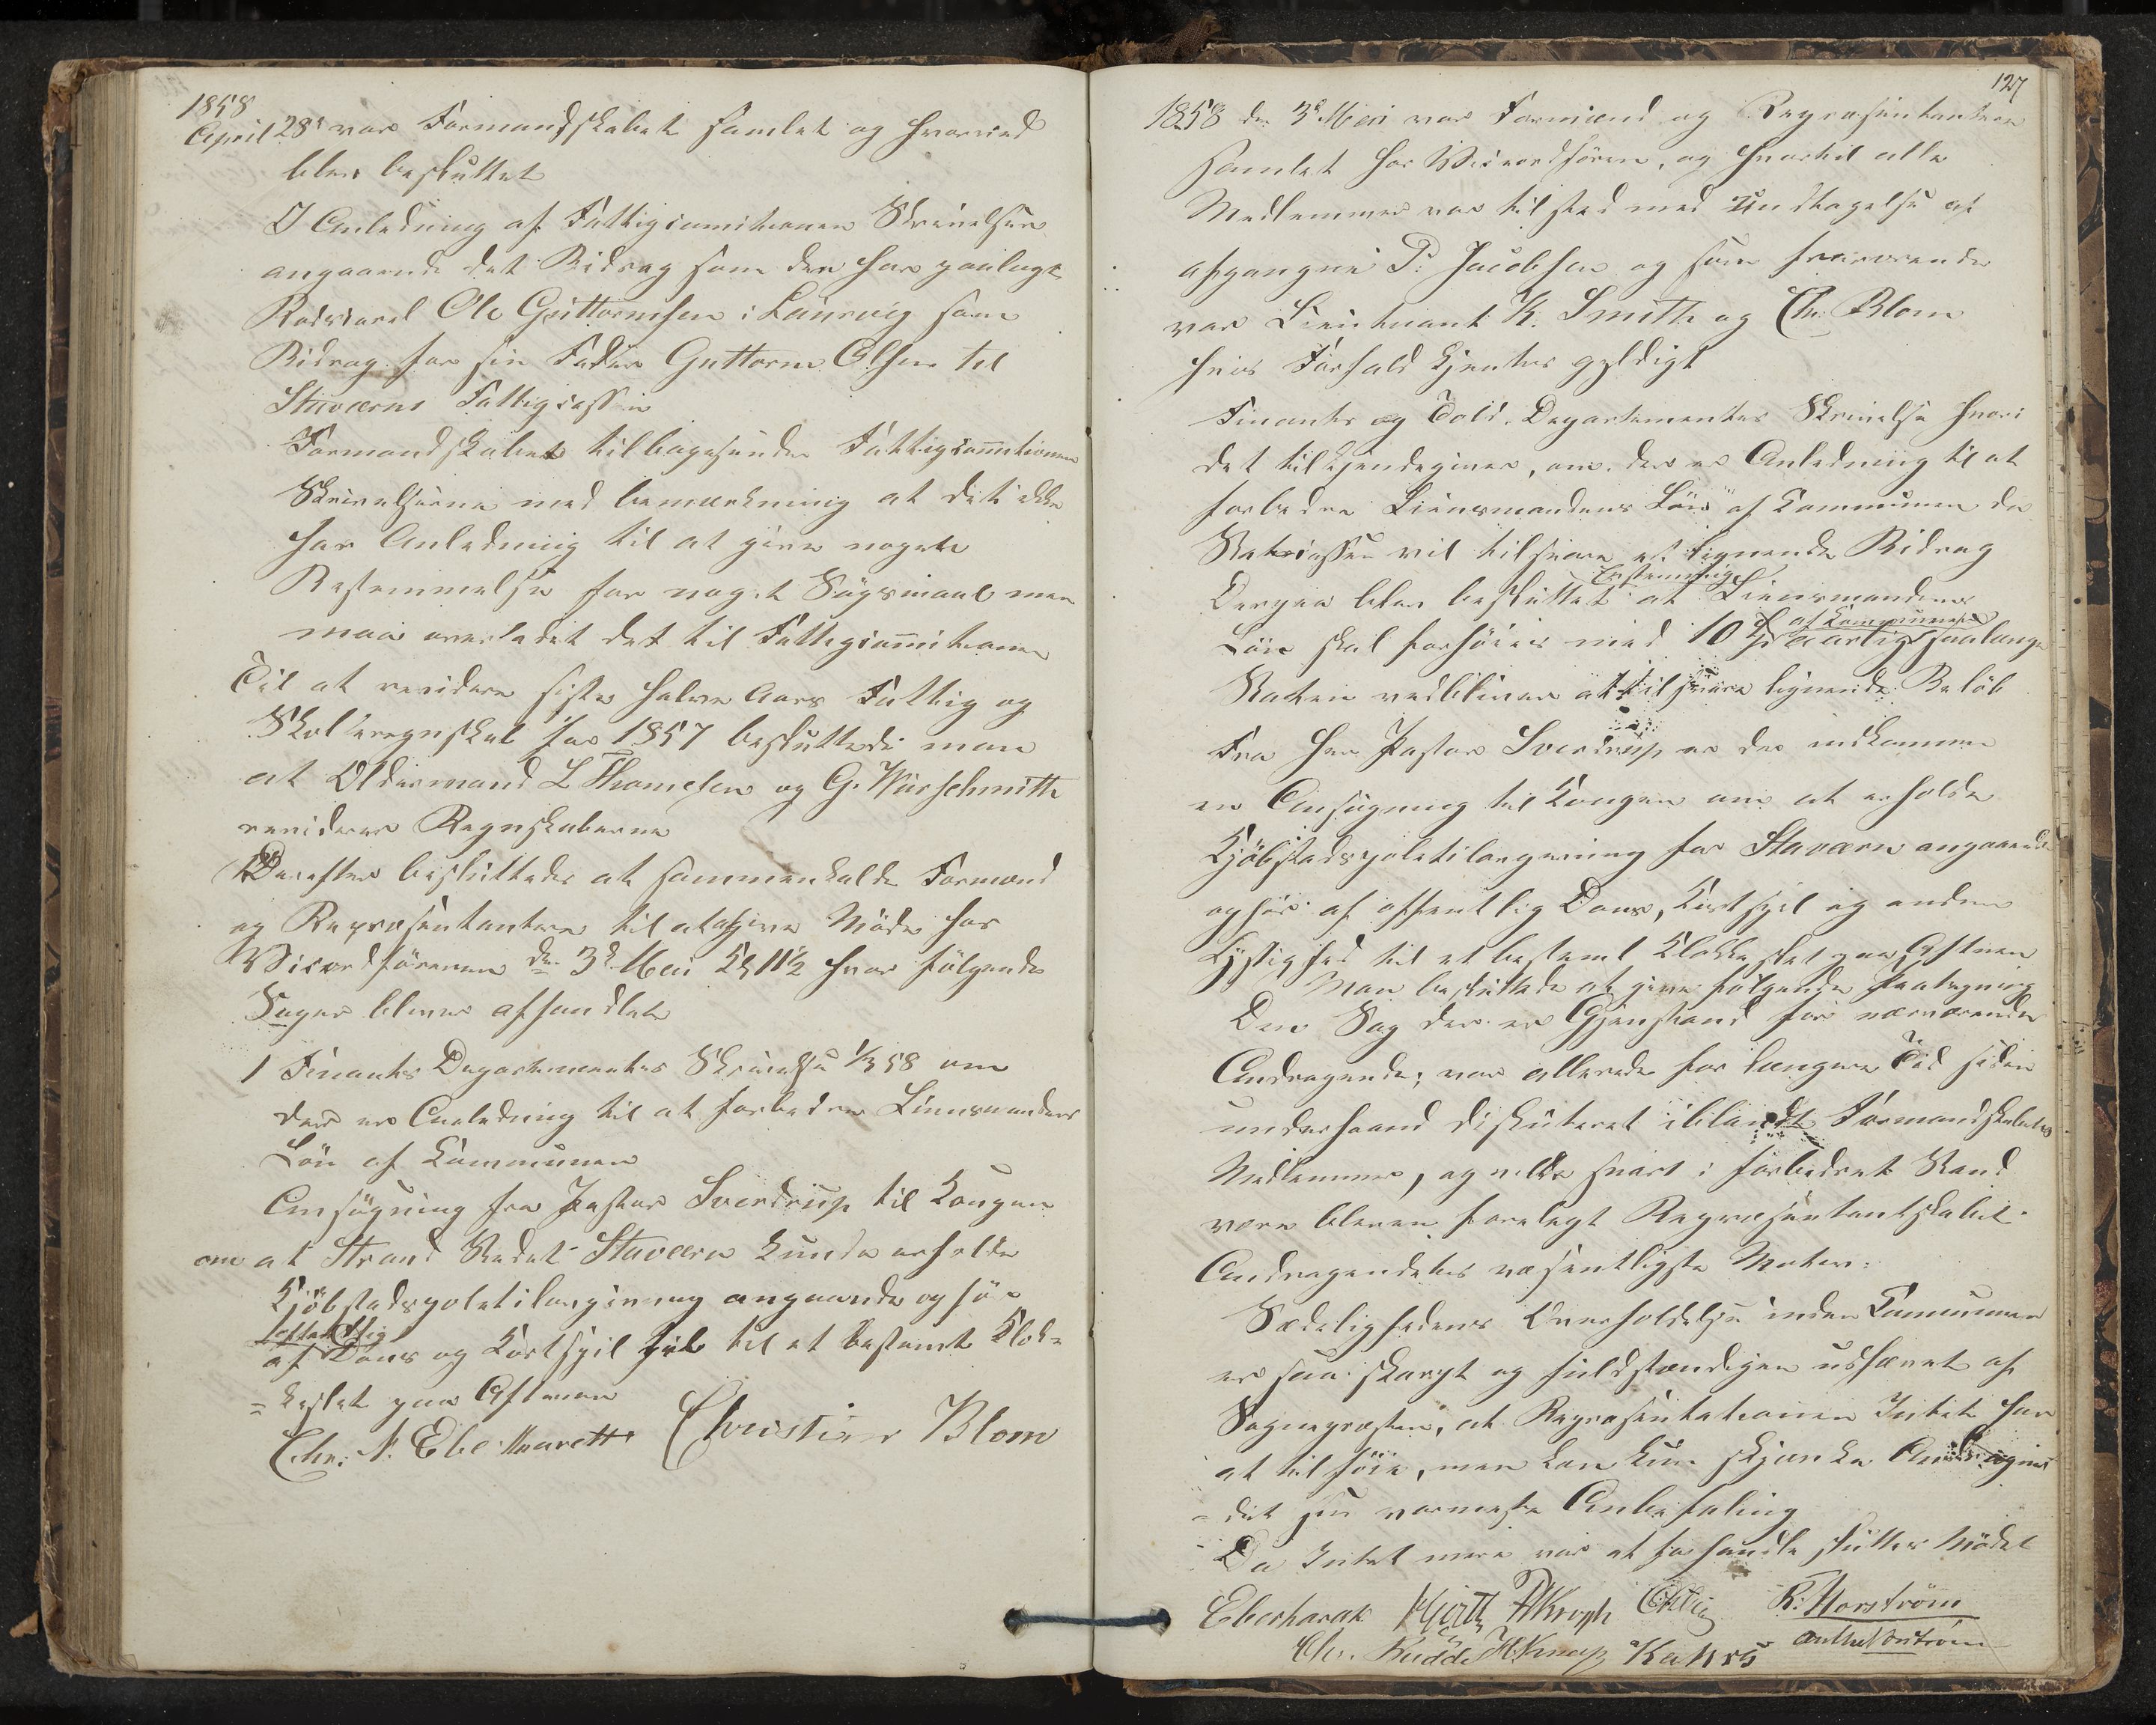 1858
April 28de var Formandskabet samlet og hvorved
blev besluttet
I Anledning af Fattigcomitionen Skrivelsen
angaaende det Bidrag som der har paalagt
Ole Guttormsen i Laurvig som
Bidrag for sin Fader Guttorm Olsen til
Staværns Fattigcasse
Formandskabet tilbagesender Fattigcomitionen
Skrivelserne med bemærkning at det ikke
har Anledning til at give nogen
Bestemmelse for noget Søgsmaal men
maa overladet det til Fattigcomitionen
Til at revidere siste halve Aars Fattig og
Skoleregnskab for 1857 besluttede man
at Oldermand L Thomesen og G. Würschmith
reviderer Regnskaberne
Derefter besluttedes at sammenkalde Formænd
og Repræsentantere til at afgive Møde hos
Viceordføreren den 3d Mai Kl 11½ hvor følgende
Sager bliver afhandlet
1 Finants Departementes Skrivelse 1/3 58 om
der er Anledning til at forbedre Linsmandens
Løn af Kommunen
Ansøgning fra Pastor Sverdrup til Kongen
om at Strand Stedet Staværn kunde erholde
Kjøbstadspoletilovgivning angaaende ophør
offentlig
af Dans og Kortspil til et bestemt Klok=
=keslet paa Aftenen
Chr. N. Eberhardt Christian Blom
127
1858 den 3d Mai var Formænd og Repræsentantere
samlet hos Viceordføren, og hvortil alle
Medlemmer var tilsted med Undtagelse af
afgangne P. Jacobsen og som fraværende
var Lieutnant K. Smith og Chr. Blom
hvis Forfald kjentes gyldigt
Finants og Told. Departementes Skrivelse hvori
det tilkjendegives, om der er Anledning til at
forbedre Liensmandens Løn af Kommunen da
Statscassen vil tilsvare et lignende Bidrag
Enstemmig
Derpaa blev besluttet at Liensmandens
af Kommunen
Løn skal forhøies med 10 Spd aarlig saalænge
Staten vedbliver at tilsvare lignende Beløb
Fra Her Pastor Sverdrup er der indkommen
en Ansøgning til Kongen om at erholde
Kjøbstadspoletilovgivning for Staværn angaaende
ophør af offentlig Dans, Kortspil og anden
Lystighed til et bestemt Klokkeslet paa Aftenen
Man besluttede at give følgende Paategning
Den Sag der er Gjenstand for nærværende
Andragende; var allerede for længere Tid siden
underhaand diskuteret iblandt Formandskabets
Medlemmer, og vilde snart i forbedret Stand
være bleven forelagt Repræsentantskabet.
Andragendets væsentligste Motiv:
Sædelighedens Overholdelse inden Communen
er saa skarpt og fuldstændigen udhævet af
Sognepræsten, at Repræsentationen Intet har
at tilføie, men kan kun skjænke Andragen
=det sin varmeste Anbefaling
Da Intet mere var at forhandle slutter Mødet
Eberhardt Hjorth Kroph R. Norstrøm
Chr. Budde H. Knap Kahrs